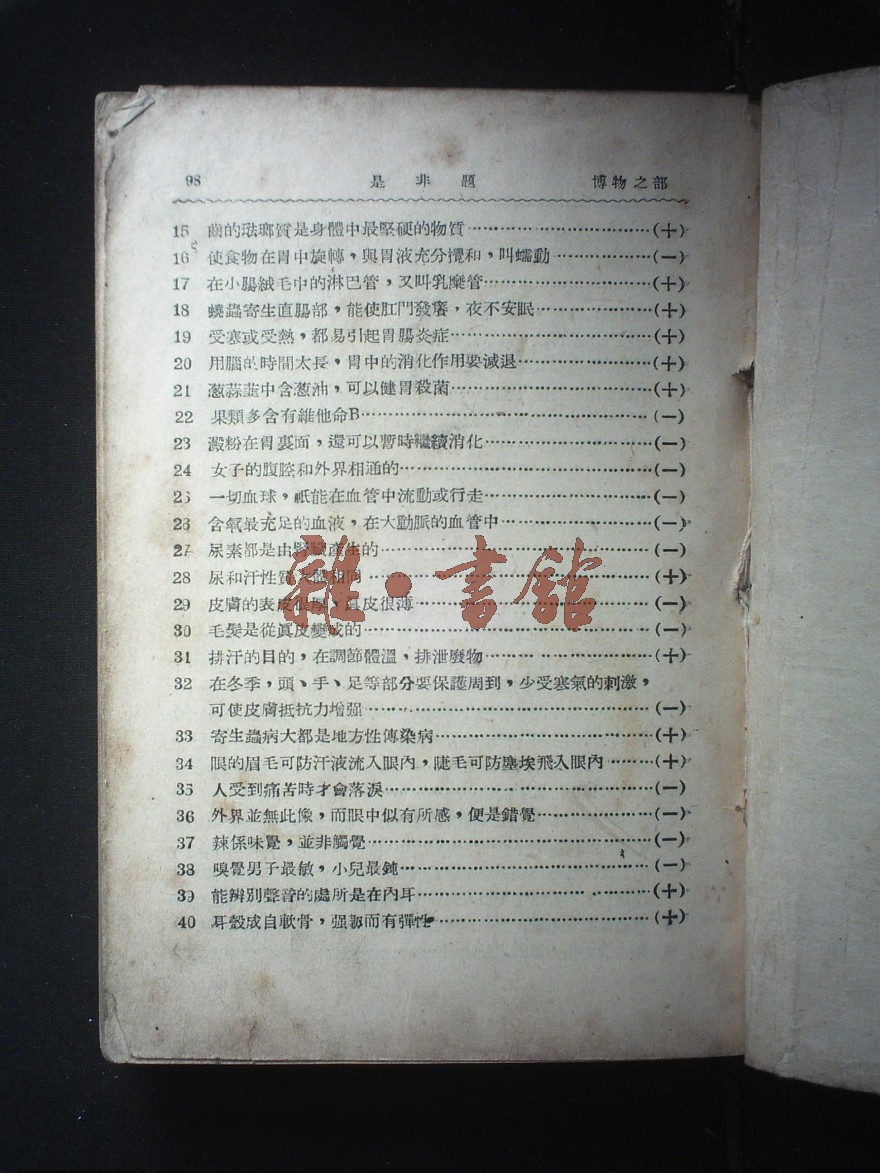 98 是非題 博物之部
15 齒的琺瑯質是身體中最堅硬的物質……………………(＋)
16 使食物在胃中旋轉，與胃液充分攪和，叫蠕動……………(－)
17 在小腸絨毛中的淋巴管，又叫乳糜管……………………(＋)
18 蟯蟲寄生直腸部，能使肛門發癢，夜不安眠………………(＋)
19 受寒或受熱，都易引起胃腸炎症……………………(＋)
20 用腦的時間太長，胃中的消化作用要減退………………(＋)
21 葱蒜韮中含葱油，可以健胃殺菌……………………(＋)
22 果類多含有維他命B……………………………(－)
23 澱粉在胃裏面，還可以暫時繼續消化……………………(－)
24 女子的腹腔和外界相通的……………………………(－)
25 一切血球，祇能在血管中流動或行走……………………(－)
26 含氧最充足的血液，在大動脈的血管中…………………(－)
27 尿素都是由腎臟產生的……………………………(－)
28 尿和汗性質大體相同……………………………(＋)
29 皮膚的表皮很厚，眞皮很薄……………………………(－)
30 毛髮是從眞皮變成的……………………………(－)
31 排汗的目的，在調節體溫，排泄廢物……………………(＋)
32 在冬季，頭、手、足等部分要保護周到，少受寒氣的刺激，
可使皮膚抵抗力增强……………………………(－)
33 寄生蟲病大都是地方性傳染病……………………(＋)
34 眼的眉毛可防汗液流入眼內，睫毛可防塵埃飛入眼內……(＋)
35 人受到痛苦時才會落淚……………………………(－)
36 外界並無此像，而眼中似有所感，便是錯覺………………(－)
37 辣係味覺，並非觸覺……………………………(－)
38 嗅覺男子最敏，小兒最鈍……………………………(－)
39 能辨別聲音的處所是在內耳……………………………(＋)
40 耳殼成自軟骨，强韌而有彈性……………………………(＋)
雜·書館